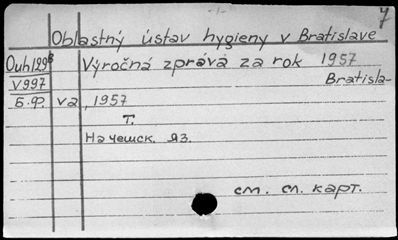 7
Oblastný ústav hygieny v Bratislave
Výročná zpráva za rok 1957
V997 Bratisla-
Б.Ф. va, 1957
т.
На чешск. яз.
см. сл. карт.